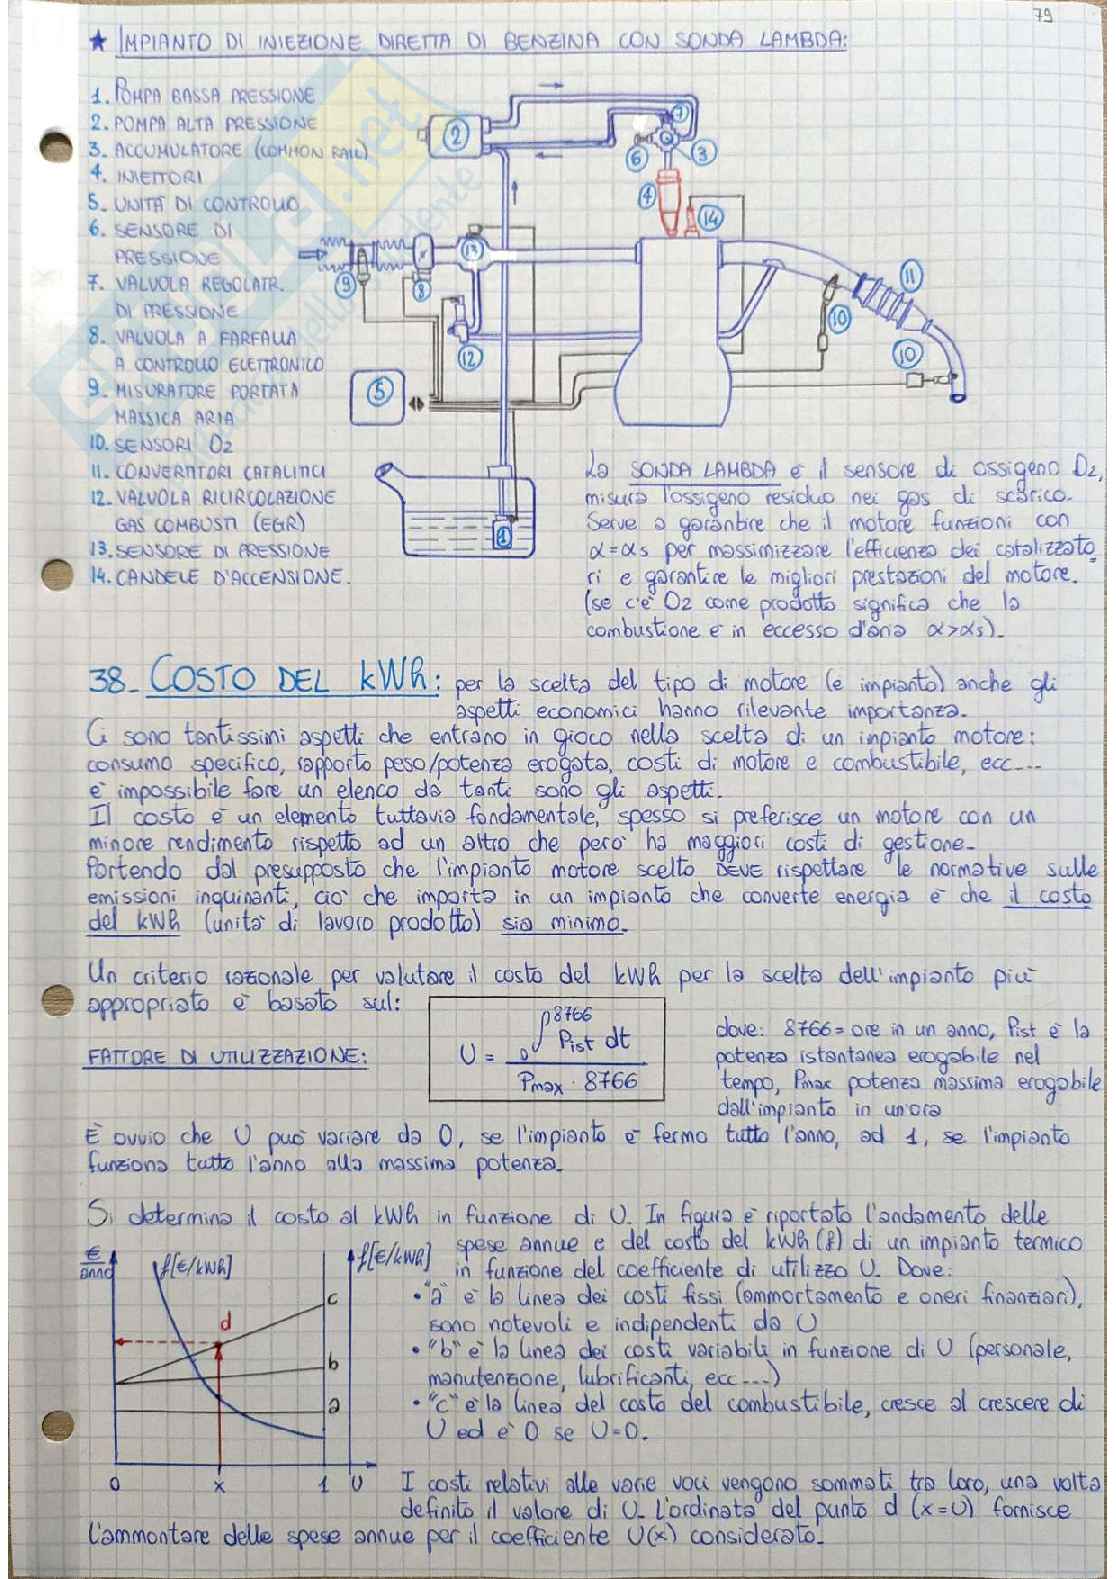 79
★ IMPIANTO DI INIEZIONE DIRETTA DI BENZINA CON SONDA LAMBDA:
1. POMPA BASSA PRESSIONE
2. POMPA ALTA PRESSIONE
3. ACCUMULATORE (COMMON RAIL)
4. INIETTORI
5. UNITÀ DI CONTROLLO
6. SENSORE DI
PRESSIONE
7. VALVOLA REGOLATR.
DI PRESSIONE
8. VALVOLA A FARFALLA
A CONTROLLO ELETTRONICO
9. MISURATORE PORTATA
MASSICA ARIA
10. SENSORI O2
11. CONVERTITORI CATALITICI
12. VALVOLA RICIRCOLAZIONE
GAS COMBUSTI (EGR)
13. SENSORE DI PRESSIONE
14. CANDELE D'ACCENSIONE.
2
7
6
3
4
14
13
9
8
11
10
12
10
5
1
La SONDA LAMBDA è il sensore di ossigeno O2,
misura l'ossigeno residuo nei gas di scarico.
Serve a garantire che il motore funzioni con
α=αs per massimizzare l'efficienza dei catalizzato
ri e garantire le migliori prestazioni del motore.
(se c'è O2 come prodotto significa che la
combustione è in eccesso d'aria α>αs).
38. COSTO DEL kWh: per la scelta del tipo di motore (e impianto) anche gli
aspetti economici hanno rilevante importanza.
Ci sono tantissimi aspetti che entrano in gioco nella scelta di un impianto motore:
consumo specifico, rapporto peso/potenza erogata, costi di motore e combustibile, ecc...
è impossibile fare un elenco da tanti sono gli aspetti.
Il costo è un elemento tuttavia fondamentale, spesso si preferisce un motore con un
minore rendimento rispetto ad un altro che però ha maggiori costi di gestione.
Partendo dal presupposto che l'impianto motore scelto DEVE rispettare le normative sulle
emissioni inquinanti, ciò che importa in un impianto che converte energia è che il costo
del kWh (unità di lavoro prodotto) sia minimo.
Un criterio razionale per valutare il costo del kWh per la scelta dell'impianto più
appropriato è basato sul:
FATTORE DI UTILIZZAZIONE:
U = ∫0^8766 Pist dt / Pmax · 8766
dove: 8766 = ore in un anno, Pist è la
potenza istantanea erogabile nel
tempo, Pmax potenza massima erogabile
dall'impianto in un'ora
È ovvio che U può variare da 0, se l'impianto è fermo tutto l'anno, ad 1, se l'impianto
funziona tutto l'anno alla massima potenza.
Si determina il costo al kWh in funzione di U. In figura è riportato l'andamento delle
spese annue e del costo del kWh (f) di un impianto termico
in funzione del coefficiente di utilizzo U. Dove:
• "a" è la linea dei costi fissi (ammortamento e oneri finanziari),
sono notevoli e indipendenti da U
• "b" è la linea dei costi variabili in funzione di U (personale,
manutenzione, lubrificanti, ecc...)
• "c" è la linea del costo del combustibile, cresce al crescere di
U ed è 0 se U=0.
€/anno
f[€/kWh]
f[€/kWh]
c
d
b
a
0
x
1
U
I costi relativi alle varie voci vengono sommati tra loro, una volta
definito il valore di U. L'ordinata del punto d (x=U) fornisce
l'ammontare delle spese annue per il coefficiente U(x) considerato.